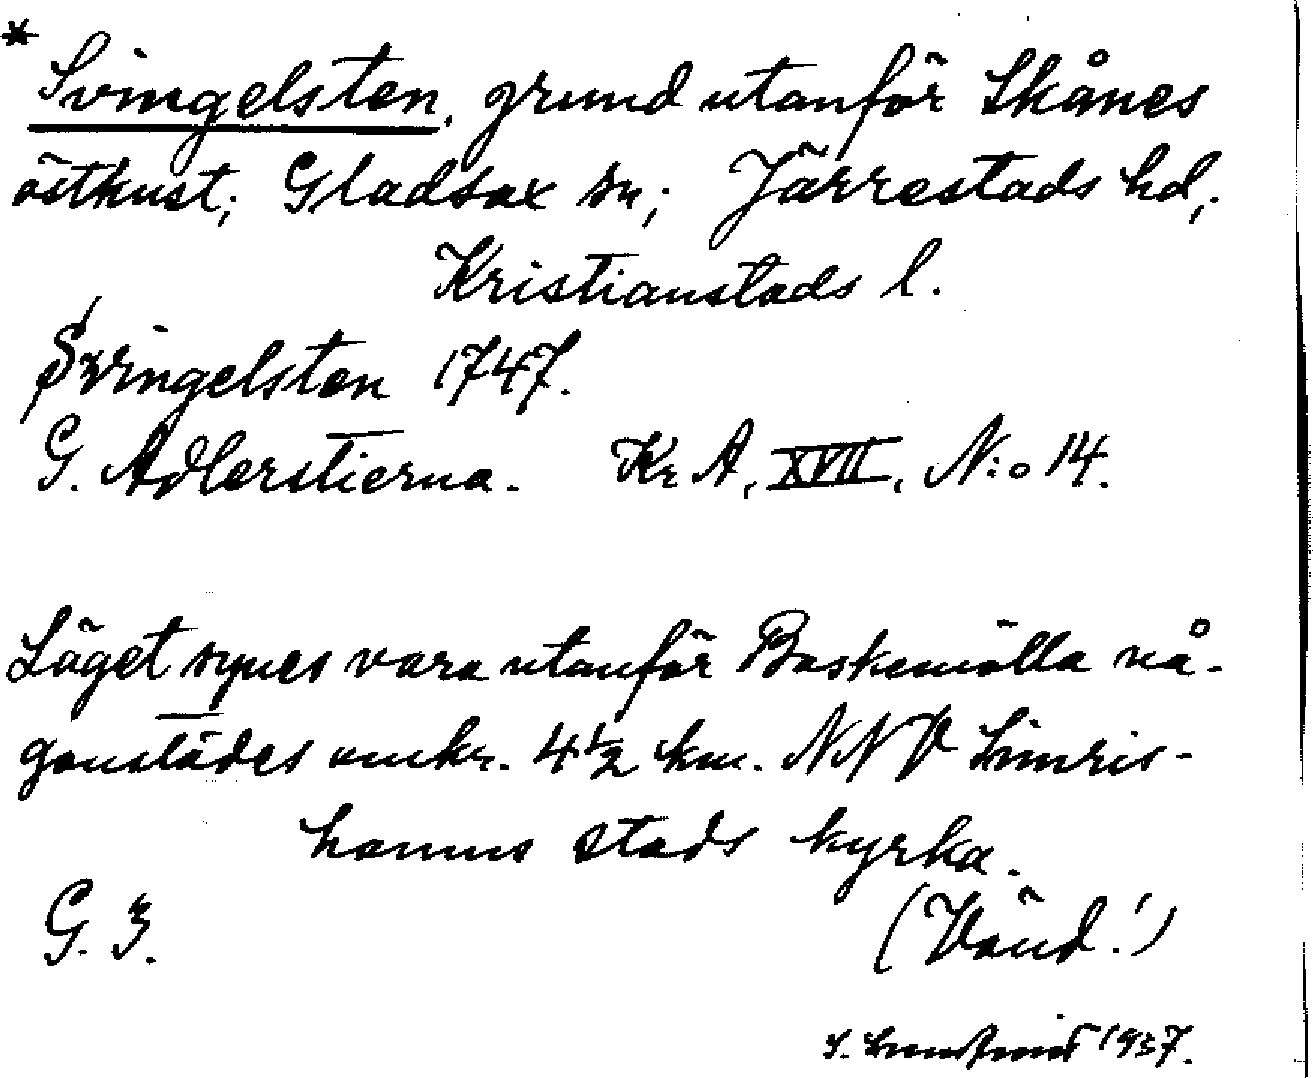 * Svingelsten, grund utanför Skånes
östkust; Gladsax sn; Järrestads hd,
Kristianstads l.
Svingelsten 1747.
G. Adlerstierna. Kr A, XVII, N:o 14.
Läget synes vara utanför Baskemölla nå-
gonstädes omkr. 4½ km. NNV Simris-
hamns stads kyrka.
G. 3.
(Vänd!)
1937.